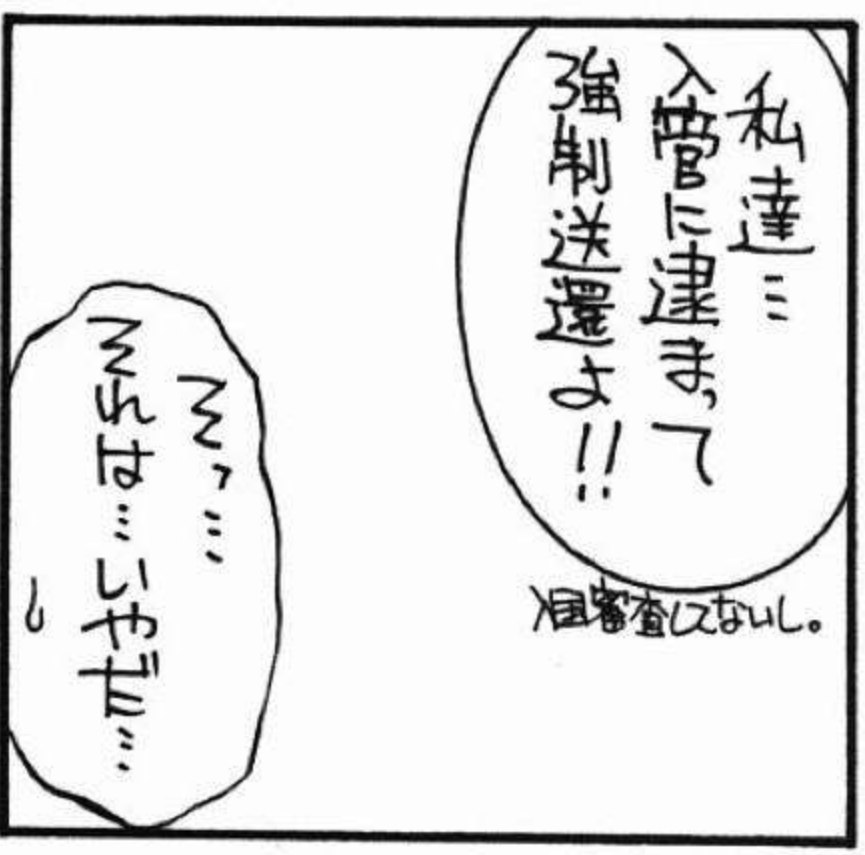 私達…
入管に逮まって
強制送還よ!!
入国審査してないし。
そっ…
それは…いやだ…